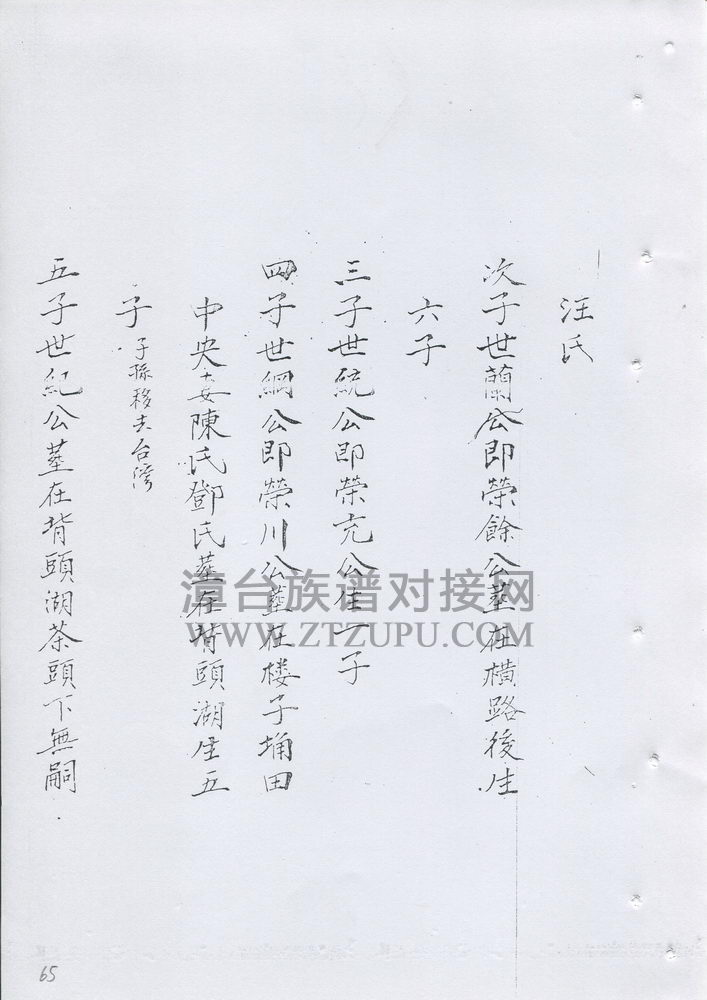 汪氏
次子世蘭公即榮餘公塟在橫路後生
六子
三子世統公即榮充公生一子
四子世綱公即榮川公塟在楼子埇田
中央妻陳氏鄧氏塟在背頭湖生五
子 子孫移去台湾
五子世紀公塟在背頭湖茶頭下無嗣
漳台族谱对接网
WWW.ZTZUPU.COM
65